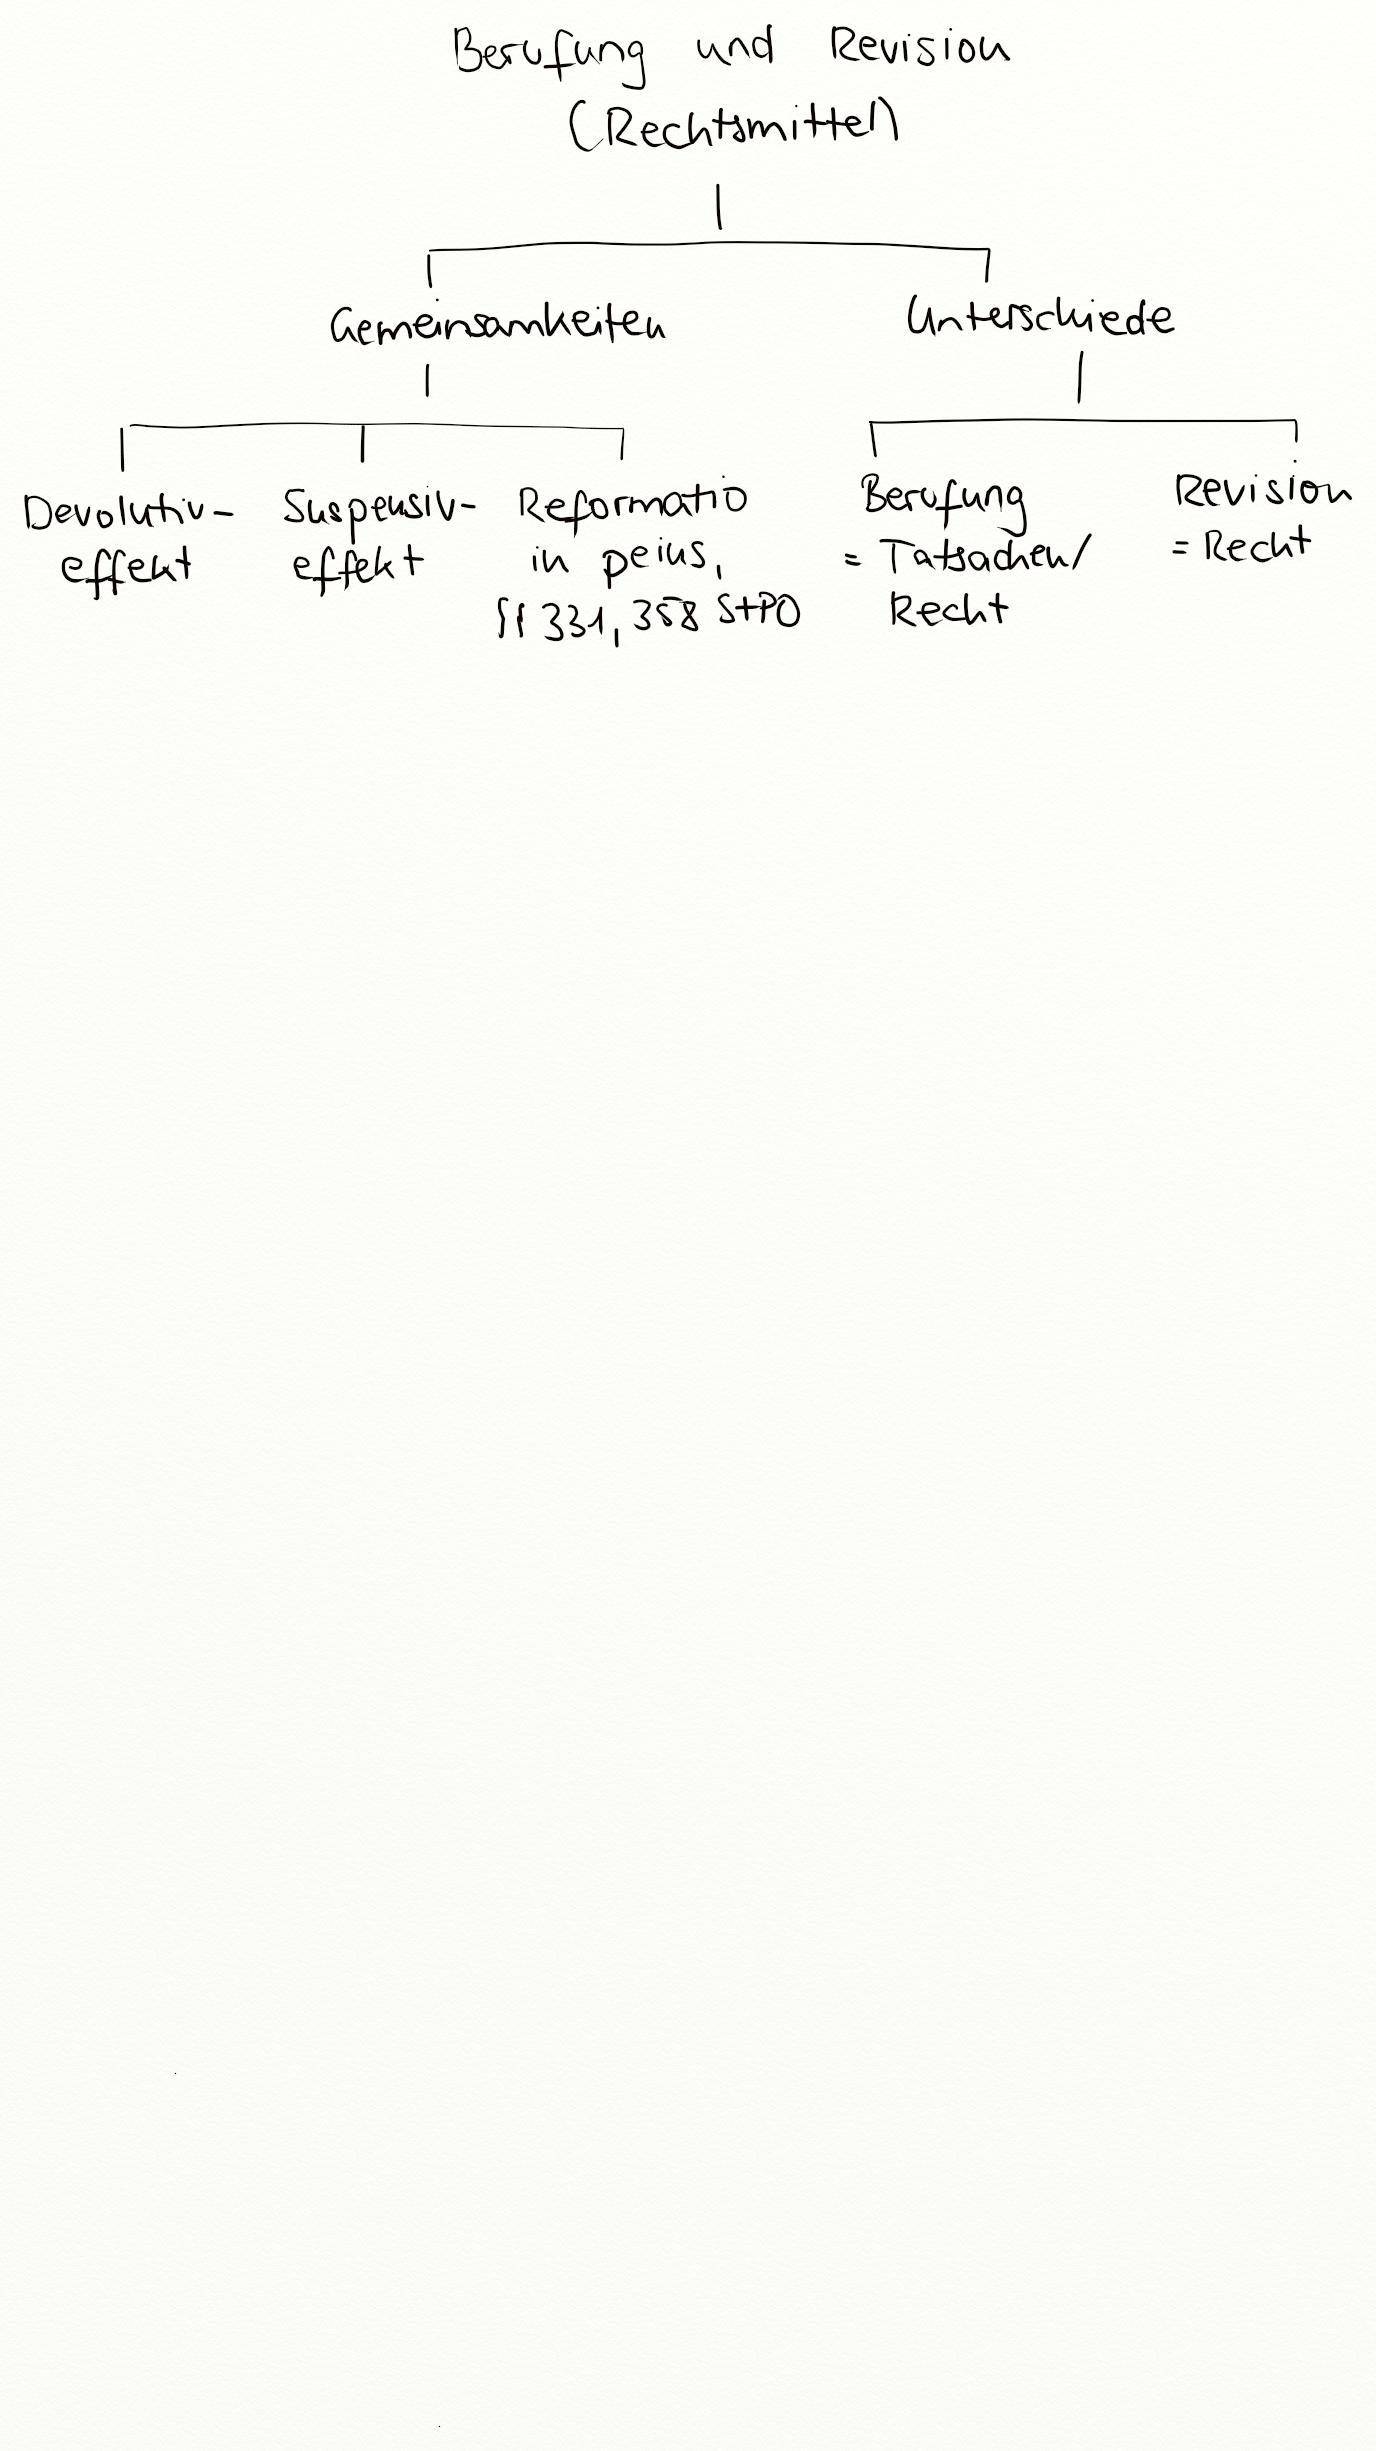 Berufung und Revision
(Rechtsmittel)
Gemeinsamkeiten
Unterschiede
Devolutiv-
effekt
Suspensiv-
effekt
Reformatio
in peius,
§§ 331, 358 StPO
Berufung
= Tatsachen/
Recht
Revision
= Recht